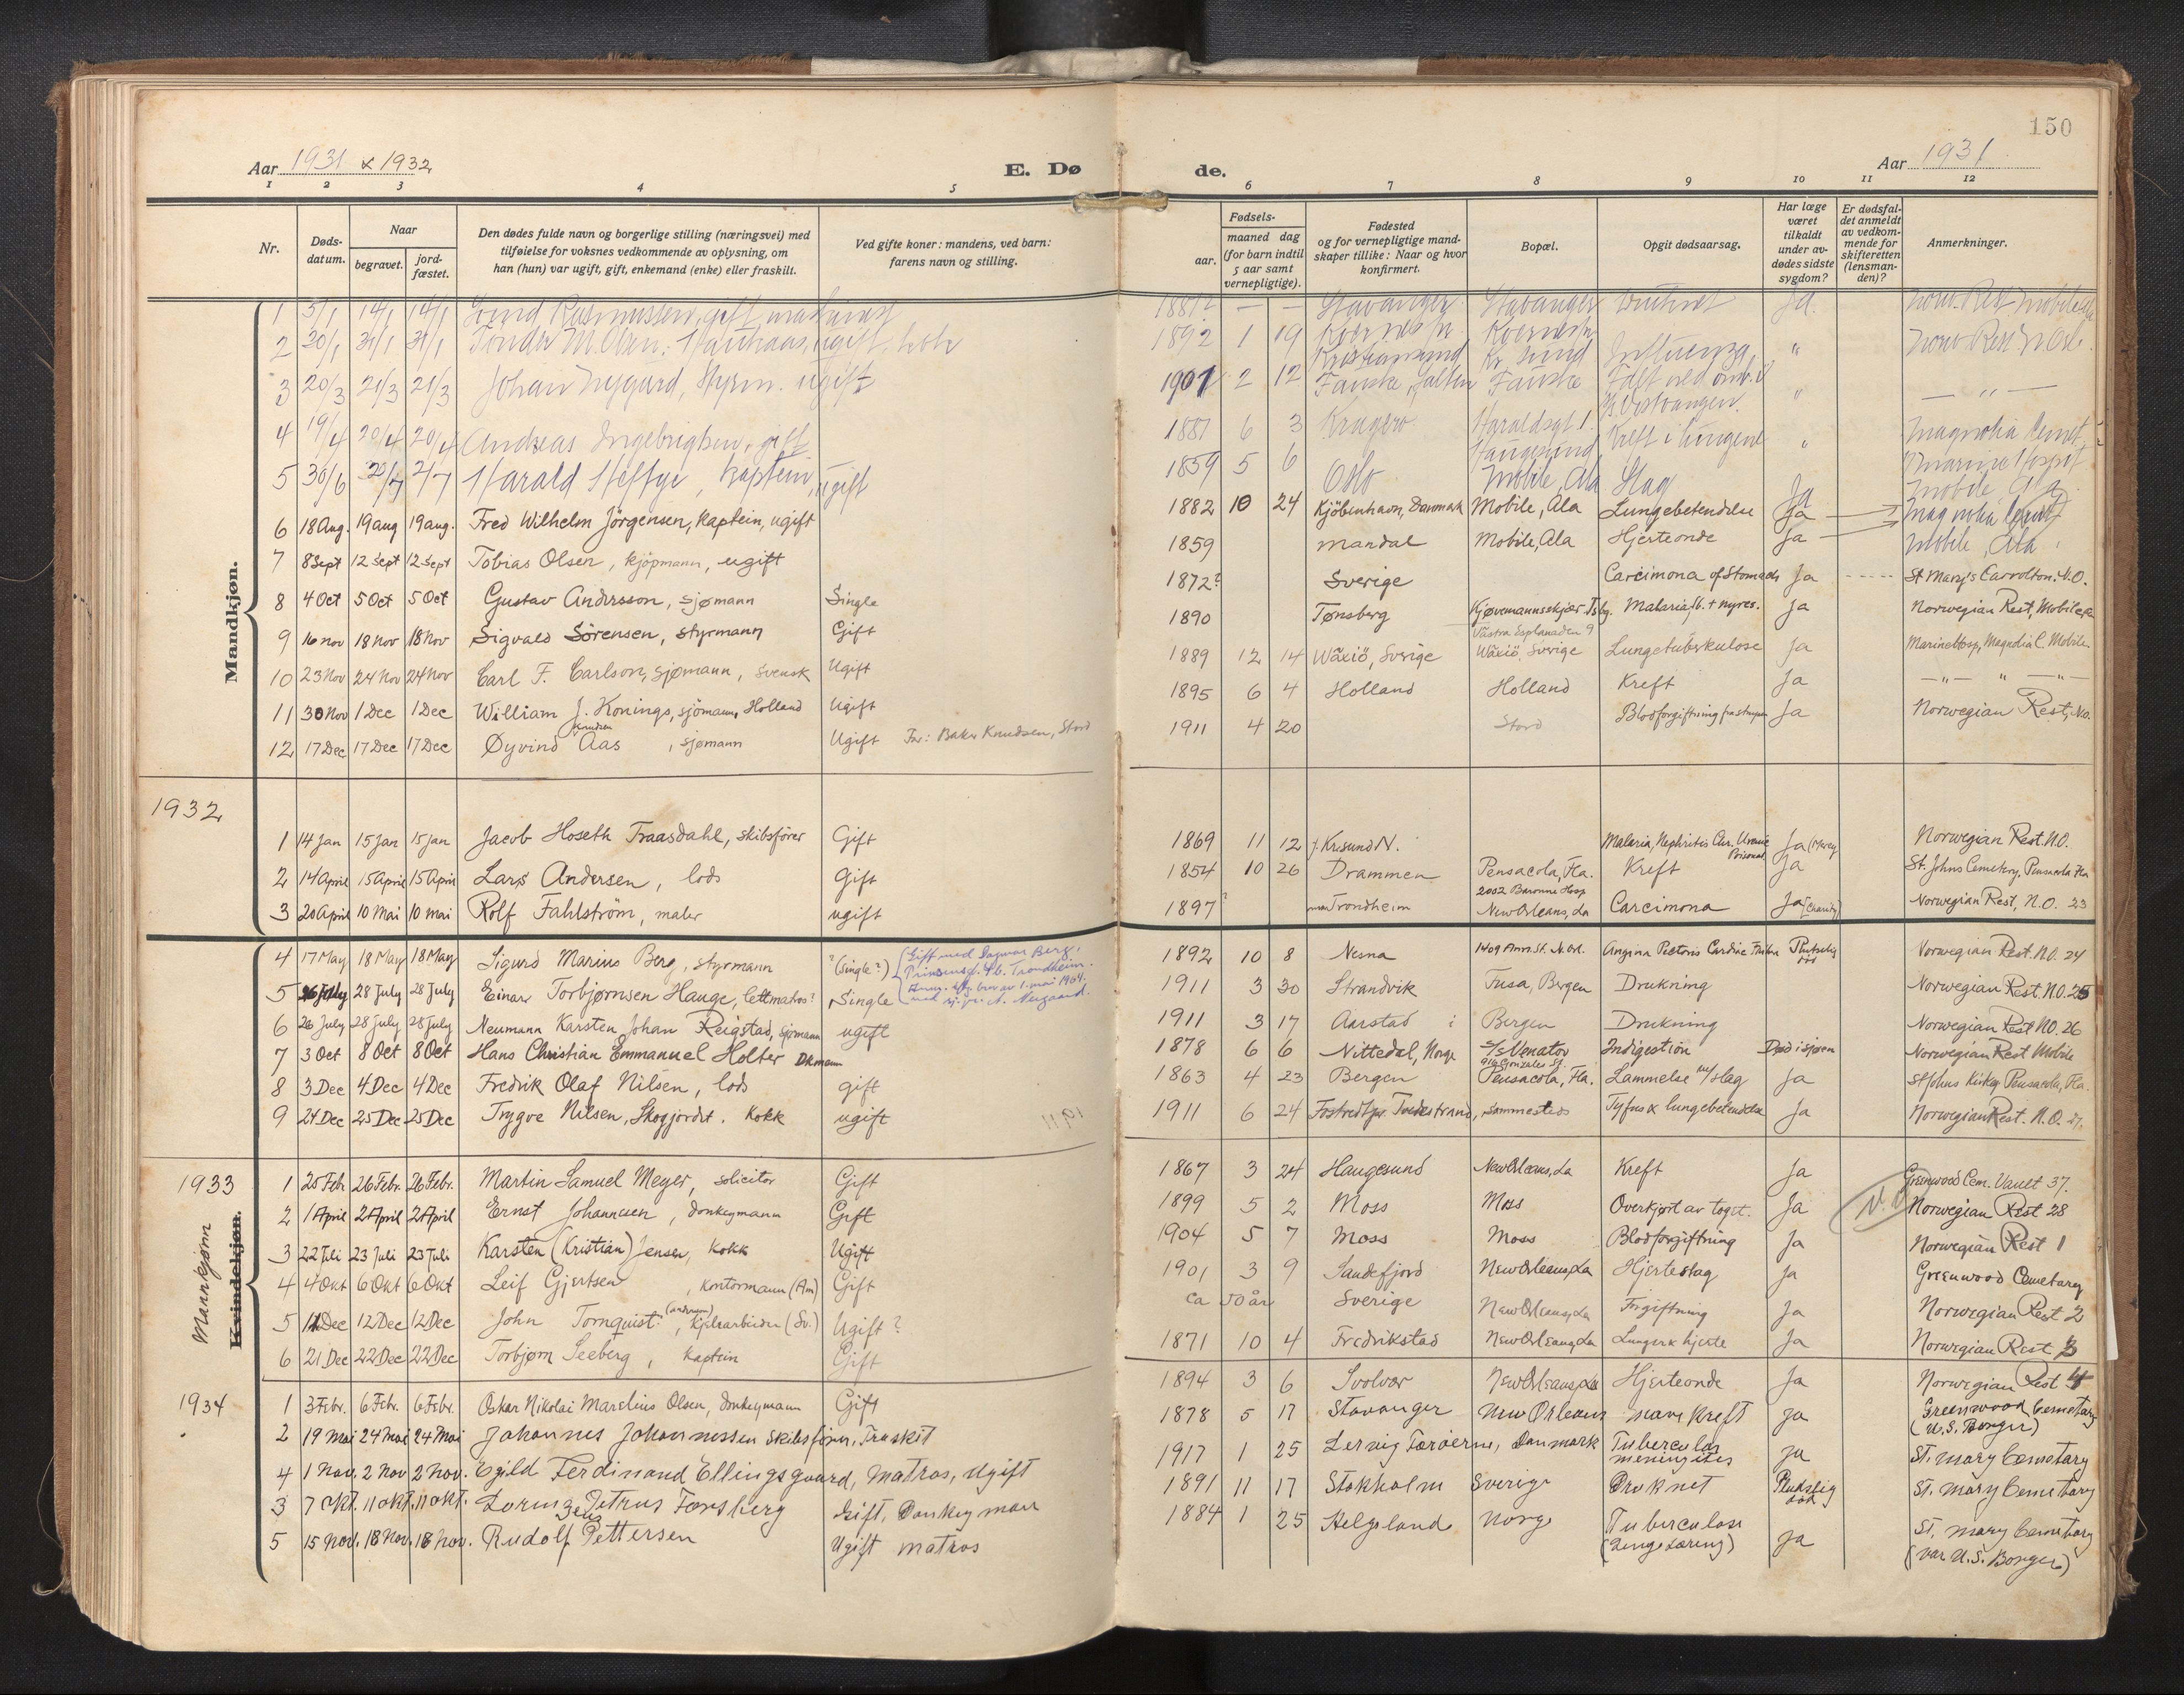 150
Aar 1931 & 1932
E. Dø
de.
Aar 1931
1 2 3 4 5 6 7 8 9 10 11 12
Nr.
Døds-
datum.
Naar
begravet.
jord-
fæstet.
Den dødes fulde navn og borgerlige stilling (næringsvei) med
tilføielse for voksnes vedkommende av oplysning, om
han (hun) var ugift, gift, enkemand (enke) eller fraskilt.
Ved gifte koner: mandens, ved barn:
farens navn og stilling.
Fødsels-
aar.
maaned dag
(for barn indtil
5 aar samt
vernepligtige).
Fødested
og for vernepligtige mand-
skaper tillike: Naar og hvor
konfirmert.
Bopæl.
Opgit dødsaarsag.
Har læge
været
tilkaldt
under av-
dødes sidste
sygdom?
Er dødsfal-
det anmeldt
av vedkom-
mende for
skifteretten
(lensman-
den)?
Anmerkninger.
Mandkjøn.
1 5/1 14/1 14/1 Rasmussen, gift — — Stavanger Stavanger Ja.
2 30/1 31/1 31/1 M. Olsen, ugift 1892 1 19 Kristiansund Kr. sund Influenza "
3 20/3 21/3 21/3 Johan Nygaard, Styrm. ugift 1901 2 12 Fauske, Salten Fauske Falt ned " — " —
4 19/4 20/4 20/4 Andreas Ingebrigtsen, gift 1887 6 3 Kragerø Haraldsgt 1. Haugesund Kreft i lungene " Magnolia Cemet.
5 30/6 2/7 2/7 Harald Heftye, kaptein, ugift 1859 5 6 Oslo Mobile, Ala Slag Ja Marine Hospit. Mobile, Ala
6 18 Aug. 19 aug 19 aug. Fred Wilhelm Jörgensen, kaptein, ugift 1882 10 24 Kjöbenhavn, Danmark Mobile, Ala Lungebetendelse Ja Magnolia Cemet
7 8 Sept 12 Sept 12 Sept Tobias Olsen, kjöpmann, ugift 1859 Mandal Mobile, Ala Hjerteonde Ja Mobile, Ala.
8 4 Oct 5 Oct 5 Oct Gustav Andersson, sjømann Single 1872? Sverige Carcimona of Stomach Ja St Mary's Carrolton. N.O.
9 16 nov 18 Nov 18 Nov Sigvald Sörensen, styrmann Gift 1890 Tønsberg Kjøpmannsskjær Tsbg. Malaria + nyres. Ja Norwegian Rest, Mobile
10 23 Nov 24 Nov 24 Nov Carl F. Carlson, sjømann, svensk Ugift 1889 12 14 Wäxiö, Sverige Västra Esplanaden 9 Wäxiö, Sverige Lungetuberkulose Ja Marinehosp, Magnolia C. Mobile
11 30 Nov 1 Dec 1 Dec William J. Konings, sjömann, Holland Ugift 1895 6 4 Holland Holland Kreft Ja — " — " — " —
12 17 Dec 17 Dec 17 Dec Øyvind Knudsen Aas, sjømann Ugift Far: Baker Knudsen, Stord 1911 4 20 Stord Blodforgiftning fra strupen Ja Norwegian Rest, No.
1932
1 14 Jan 15 Jan 15 Jan Jacob Hoseth Traasdahl, skibsfører Gift 1869 11 12 Krsund N. Malaria, Nephritis Chr. Uremic Poison Ja (Mercy Norwegian Rest. N.O.
2 14 April 15 April 15 April Lars Andersen, lods Gift 1854 10 26 Drammen Pensacola, Fla. Kreft Ja St. Johns Cemetery, Pensacola Fla
3 20 April 10 Mai 10 mai Rolf Fahlström, maler ugift 1897? Trondheim 2002 Baronne New Orleans, La Carcimona Ja (Charity) Norwegian Rest, N.O. 23
4 17 May 18 May 18 May Sigurd Marius Berg, styrmann ? (single?) Gift med Dagmar Berg, Prinsensgt. 4b. Trondheim. 1892 10 8 Nesna 1409 Ann. St. N. Orl. Angina Pectoris Cardiac Plutselig død Norwegian Rest. N.O. 24
5 26 July 28 July 28 July Einar Torbjørnsen Hauge, lettmatros? Single 1911 3 30 Strandvik Fusa, Bergen Drukning Norwegian Rest. N.O. 25
6 26 July 28 July 28 July Neumann Karsten Johan Reigstad, sjømann ugift 1911 3 17 Aarstad i Bergen Drukning Norwegian Rest NO. 26
7 3 Oct 8 Oct 8 Oct Hans Christian Emmanuel Holter Dkmann 1878 6 6 Nittedal, Norge S/S Venator Indigestion Død i sjøen Norwegian Rest Mobile
8 3 Dec 4 Dec 4 Dec Fredrik Olaf Nilsen, lods gift 1863 4 23 Bergen 916 Gonzales St. Pensacola, Fla. Lammelse m/slag Ja St Johns Kirkeg. Pensacola, Fla.
9 24 Dec 25 Dec 25 Dec Trygve Nilsen, Skogjordet. Kokk ugift 1911 6 24 Tvedestrand, sammesteds Tyfus & lungebetendelse Ja Norwegian Rest. N.O. 27.
1933
Mannkjønn
Kvindekjøn.
1 25 Febr 26 Febr. 26 Febr. Martin Samuel Meyer, solicitor Gift 1867 3 24 Haugesund New Orleans, La Kreft Ja Greenwood Cem. Vault 37.
2 1 April 2 April 2 April Ernst Johannesen, donkeymann Gift 1899 5 2 Moss Moss Overkjørt av toget. Ja Norwegian Rest 28
3 22 Juli 23 Juli 23 Juli Karsten (Kristian) Jensen, kokk Ugift 1904 5 7 Moss Moss Blodforgiftning Ja Norwegian Rest 1
4 4 Okt 6 Okt 6 Okt Leif Gjertsen, kontormann (Am) Gift 1901 3 9 Sandefjord New Orleans, La Hjerteslag Ja Greenwood Cemetary
5 11 Dec 12 Dec 12 Dec John Tornquist, (Sv.) Ugift? ca 50 år Sverige New Orleans, La Forgiftning Ja Norwegian Rest 2
6 21 Dec 22 Dec 22 Dec Torbjørn Seeberg, kaptein Gift 1871 10 4 Fredrikstad New Orleans, La Lunger & hjerte Ja Norwegian Rest 3
1934
1 3 Febr. 6 Febr. 6 Febr. Oskar Nikolai Marelius Olsen, donkeymann Gift 1894 3 6 Svolvær New Orleans, La Hjerteonde Ja Norwegian Rest 4
2 19 Mai 24 mai 24 Mai Johannes Johannessen Skibsfører, Fraskilt 1878 5 17 Stavanger New Orleans mave kreft ja Greenwood Cemetary (U.S. Borger)
4 1 Nov. 2 Nov 2 Nov. Egild Ferdinand Ellingsgaard, Matros, ugift 1917 1 25 Lervig Færöerne, Danmark Tubercular meningites ja St. Mary Cemetary
3 7 okt. 11 okt. 11 okt. Lorenzeus Petrus Forsberg Gift, Donkeyman 1891 11 17 Stokholm Sverige Druknet Pludslig død St. Mary Cemetary
5 15 Nov. 18 Nov. 18 Nov. Rudolf Pettersen Ugift matros 1884 1 25 Helgeland Norge Tuberculose (Lungetæring) ja St. Mary Cemetary (var U.S. Borger)